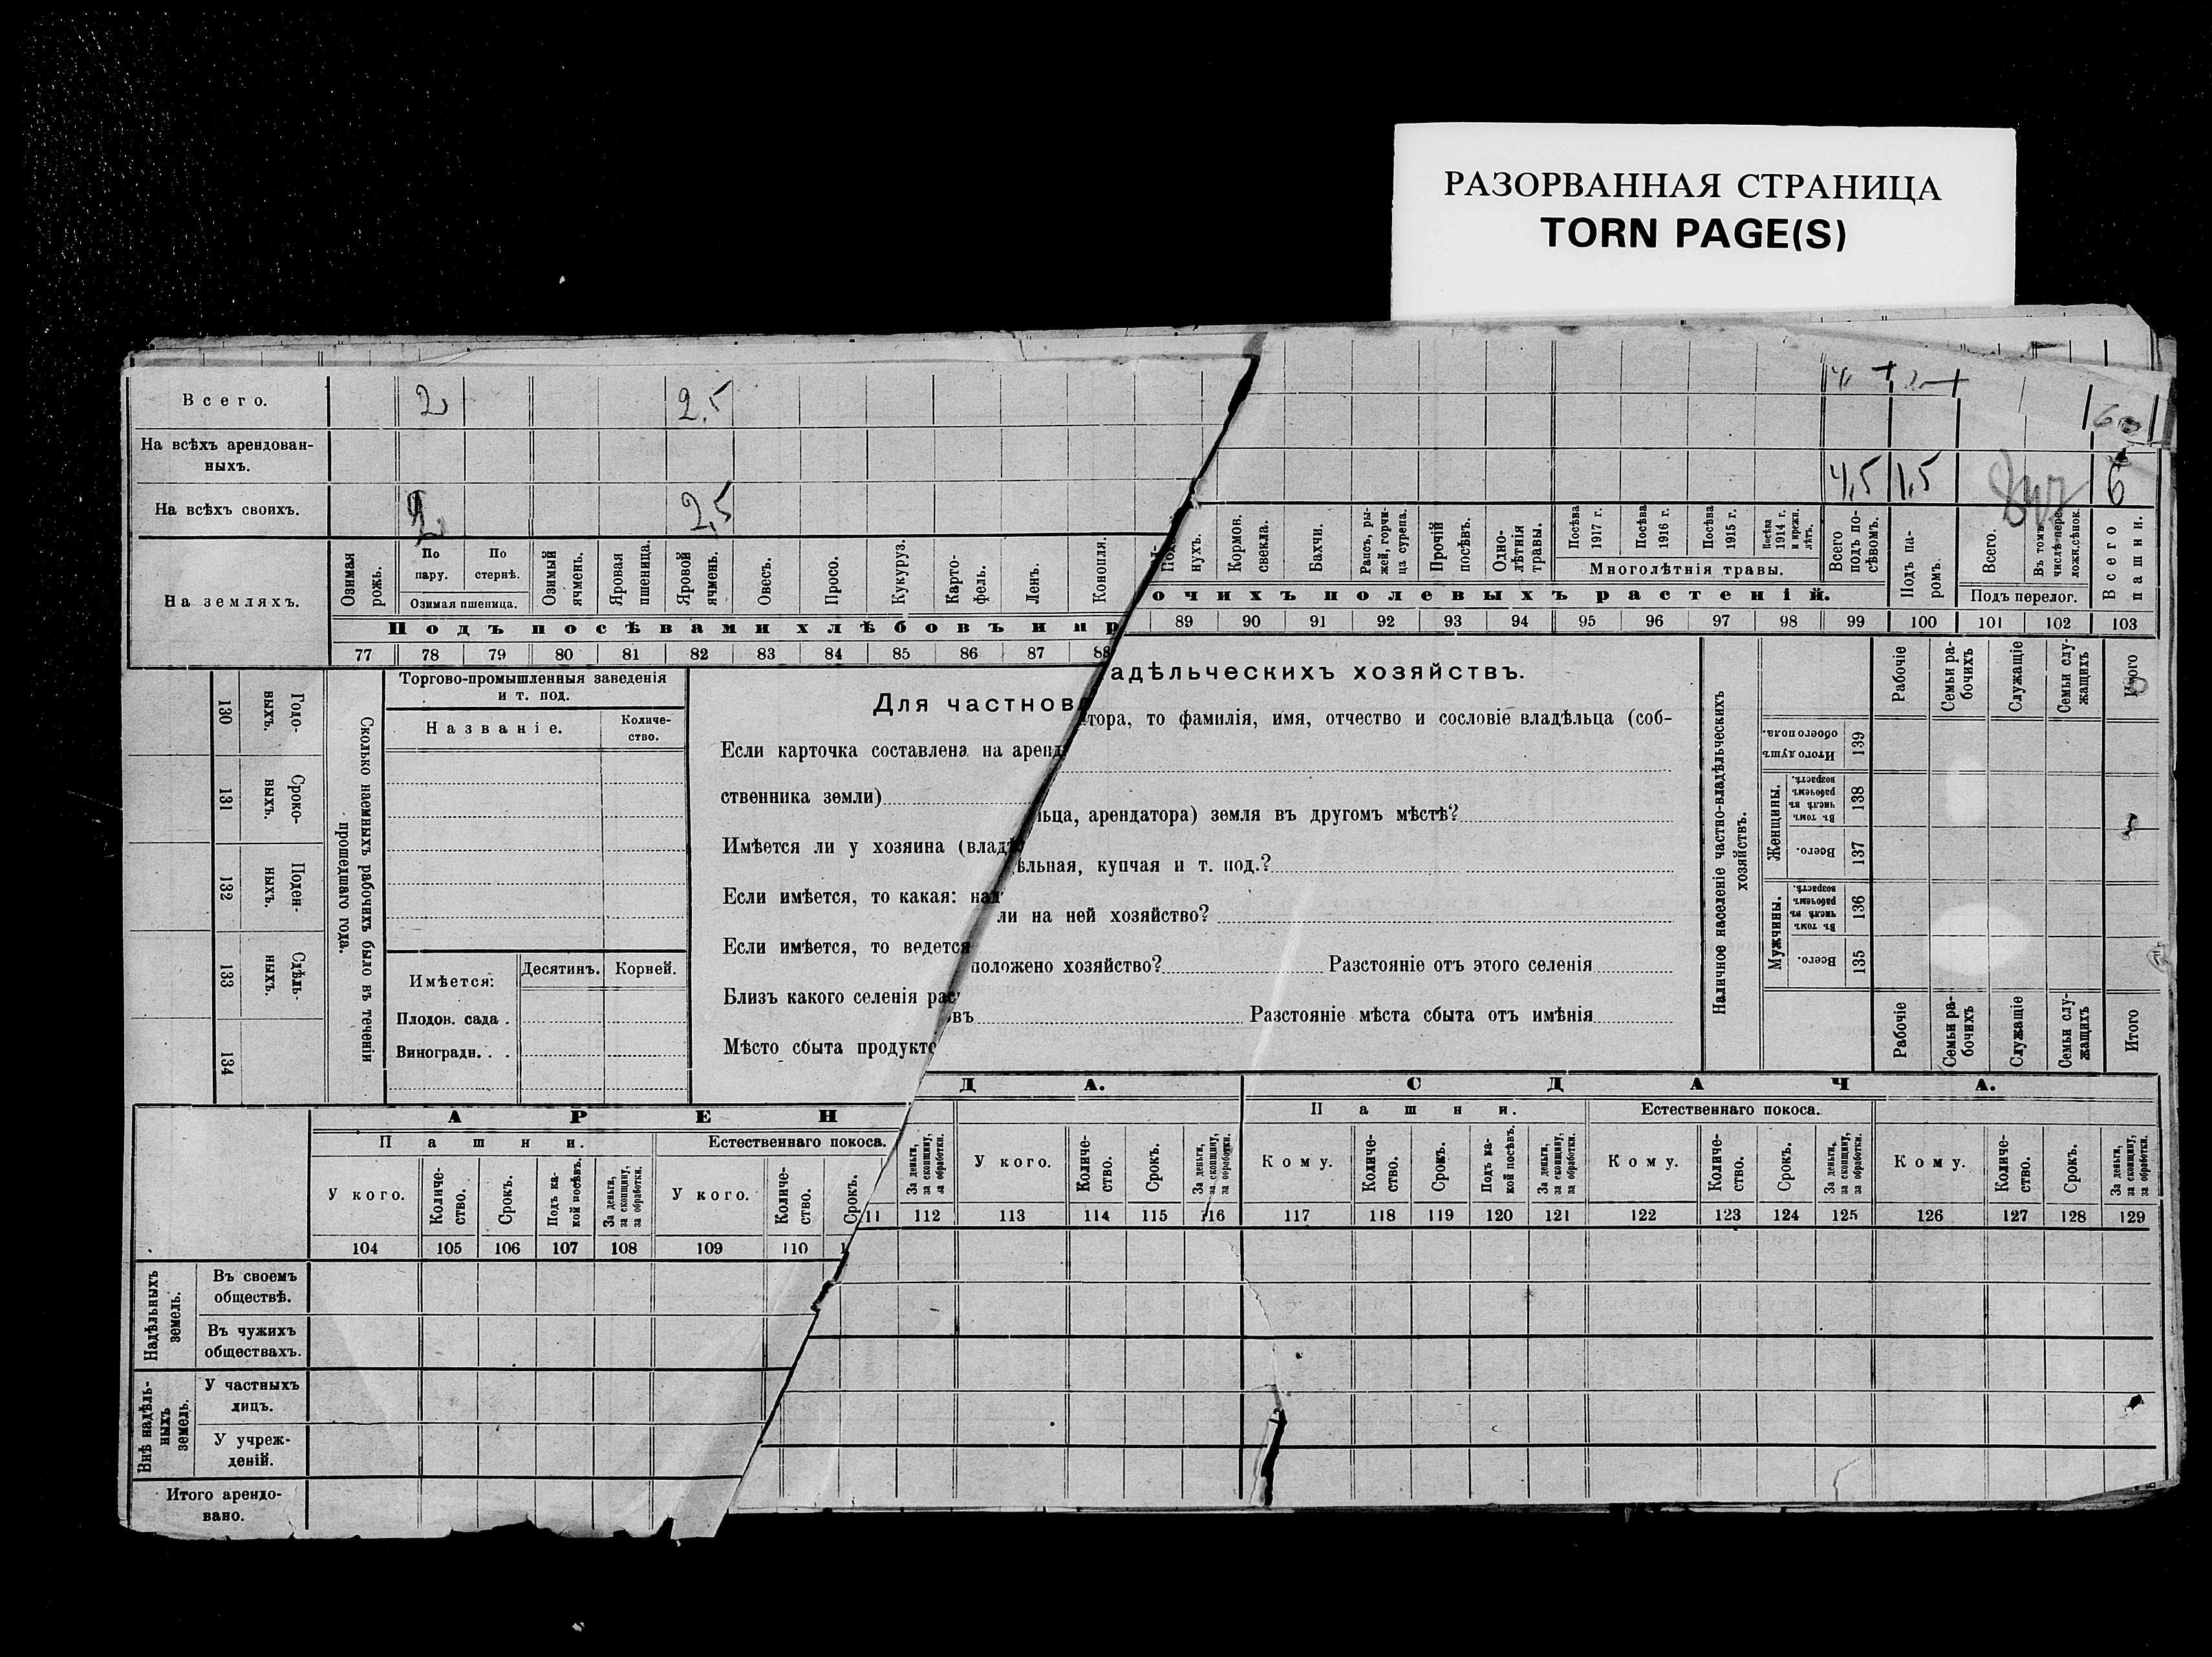 РАЗОРВАННАЯ СТРАНИЦА
TORN PAGE(S)
Всего. 2 2,5
На всѣхъ арендован-
ныхъ.
На всѣхъ своихъ. 2 2,5 4,5 1,5 6
На земляхъ.
Озимая рожь.
По пару.
По стернѣ.
Озимая пшеница.
Озимый ячмень.
Яровая пшеница.
Яровой ячмень.
Овесъ.
Просо.
Кукуруз.
Карто-
фель.
Ленъ.
Конопля.
нухъ.
Кормов. свекла.
Бахчи.
Рапсъ, ры-
жей, горчи-
ца сурепа.
Прочій посѣвъ.
Одно-
лѣтнія травы.
Посѣва 1917 г.
Посѣва 1916 г.
Посѣва 1915 г.
Посѣва 1914 г. и прежн. лѣтъ.
Многолѣтнія травы.
Всего подъ по-
сѣвомъ.
Подъ па-
ромъ.
Всего.
Въ томъ числѣ пере-
ложн.сѣнок.
Подъ перелог.
Всего пашни.
Подъ посѣвами хлѣбовъ и пр
очихъ полевыхъ растеній.
77 78 79 80 81 82 83 84 85 86 87 88 89 90 91 92 93 94 95 96 97 98 99 100 101 102 103
130 Годо-
выхъ.
131 Сроко-
выхъ.
132 Поден-
ныхъ.
133 Сдѣль-
ныхъ.
134
Сколько наемныхъ рабочихъ было въ теченіи
прошедшаго года.
Торгово-промышленныя заведенія
и т. под.
Названіе.
Количе-
ство.
Имѣется: Десятинъ. Корней.
Плодов. сада .
Виноградн. . .
Для частновладѣльческихъ хозяйствъ.
Если карточка составлена на арендатора, то фамилія, имя, отчество и сословіе владѣльца (соб-
ственника земли)
Имѣется ли у хозяина (владѣльца, арендатора) земля въ другомъ мѣстѣ?
Если имѣется, то какая: надѣльная, купчая и т. под.?
Если имѣется, то ведется ли на ней хозяйство?
Близъ какого селенія расположено хозяйство? Разстояніе отъ этого селенія
Мѣсто сбыта продуктовъ Разстояніе мѣста сбыта отъ имѣнія
Наличное населеніе частно-владѣльческихъ
хозяйствъ.
Рабочіе
Семьи ра-
бочихъ
Служащіе
Семьи слу-
жащихъ
Итого
Итого душъ обоего пола. 139
Женщины.
Въ томъ числѣ въ рабочемъ возрастѣ. 138
Всего. 137
Мужчины.
Въ томъ числѣ въ рабочемъ возрастѣ. 136
Всего. 135
Рабочіе
Семьи ра-
бочихъ
Служащіе
Семьи слу-
жащихъ
Итого
АРЕНДА.
СДАЧА.
Пашни.
Естественнаго покоса.
Пашни.
Естественнаго покоса.
У кого.
Количе-
ство.
Срокъ.
Подъ ка-
кой посѣвъ.
За деньги,
за скопщину,
за обработки.
У кого.
Количе-
ство.
Срокъ.
За деньги,
за скопщину,
за обработки.
У кого.
Количе-
ство.
Срокъ.
За деньги,
за скопщину,
за обработки.
Кому.
Количе-
ство.
Срокъ.
Подъ ка-
кой посѣвъ.
За деньги,
за скопщину,
за обработки.
Кому.
Количе-
ство.
Срокъ.
За деньги,
за скопщину,
за обработки.
Кому.
Количе-
ство.
Срокъ.
За деньги,
за скопщину,
за обработки.
104 105 106 107 108 109 110 111 112 113 114 115 116 117 118 119 120 121 122 123 124 125 126 127 128 129
Надѣльныхъ
земель.
Въ своемъ
обществѣ.
Въ чужихъ
обществахъ.
Внѣ надѣль-
ныхъ
земель.
У частныхъ
лицъ.
У учреж-
деній.
Итого арендо-
вано.